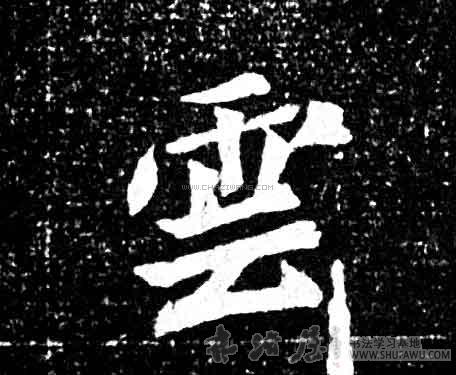 雲
WWW.CHAZIWANG.COM
书法学习基地
WWW.SHUFAWU.COM